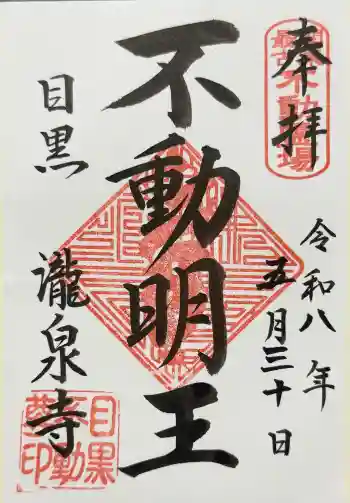 奉拝
令和八年
五月三十日
不動明王
目黒
瀧泉寺
目黒
不動
尊印